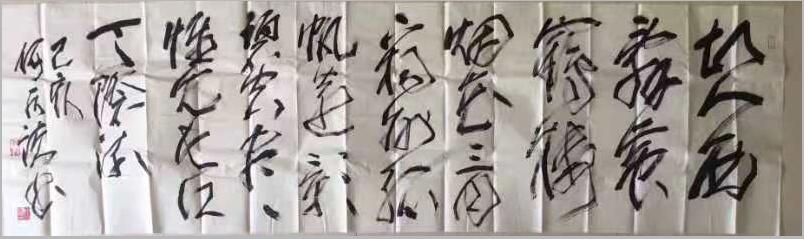 故人西
辞黄
鹤楼
烟花三月
下扬州孤
帆远影
碧空尽
惟见长江
天际流
己亥
书